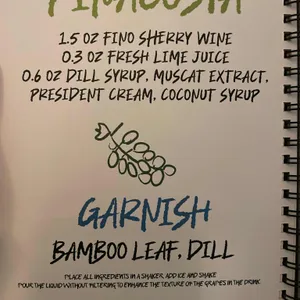 FINACOSTA
1.5 OZ FINO SHERRY WINE
0.3 OZ FRESH LIME JUICE
0.6 OZ DILL SYRUP, MUSCAT EXTRACT,
PRESIDENT CREAM, COCONUT SYRUP
GARNISH
BAMBOO LEAF, DILL
PLACE ALL INGREDIENTS IN A SHAKER, ADD ICE AND SHAKE
POUR THE LIQUID WITHOUT FILTERING TO ENHANCE THE TEXTURE OF THE GRAPES IN THE DRINK